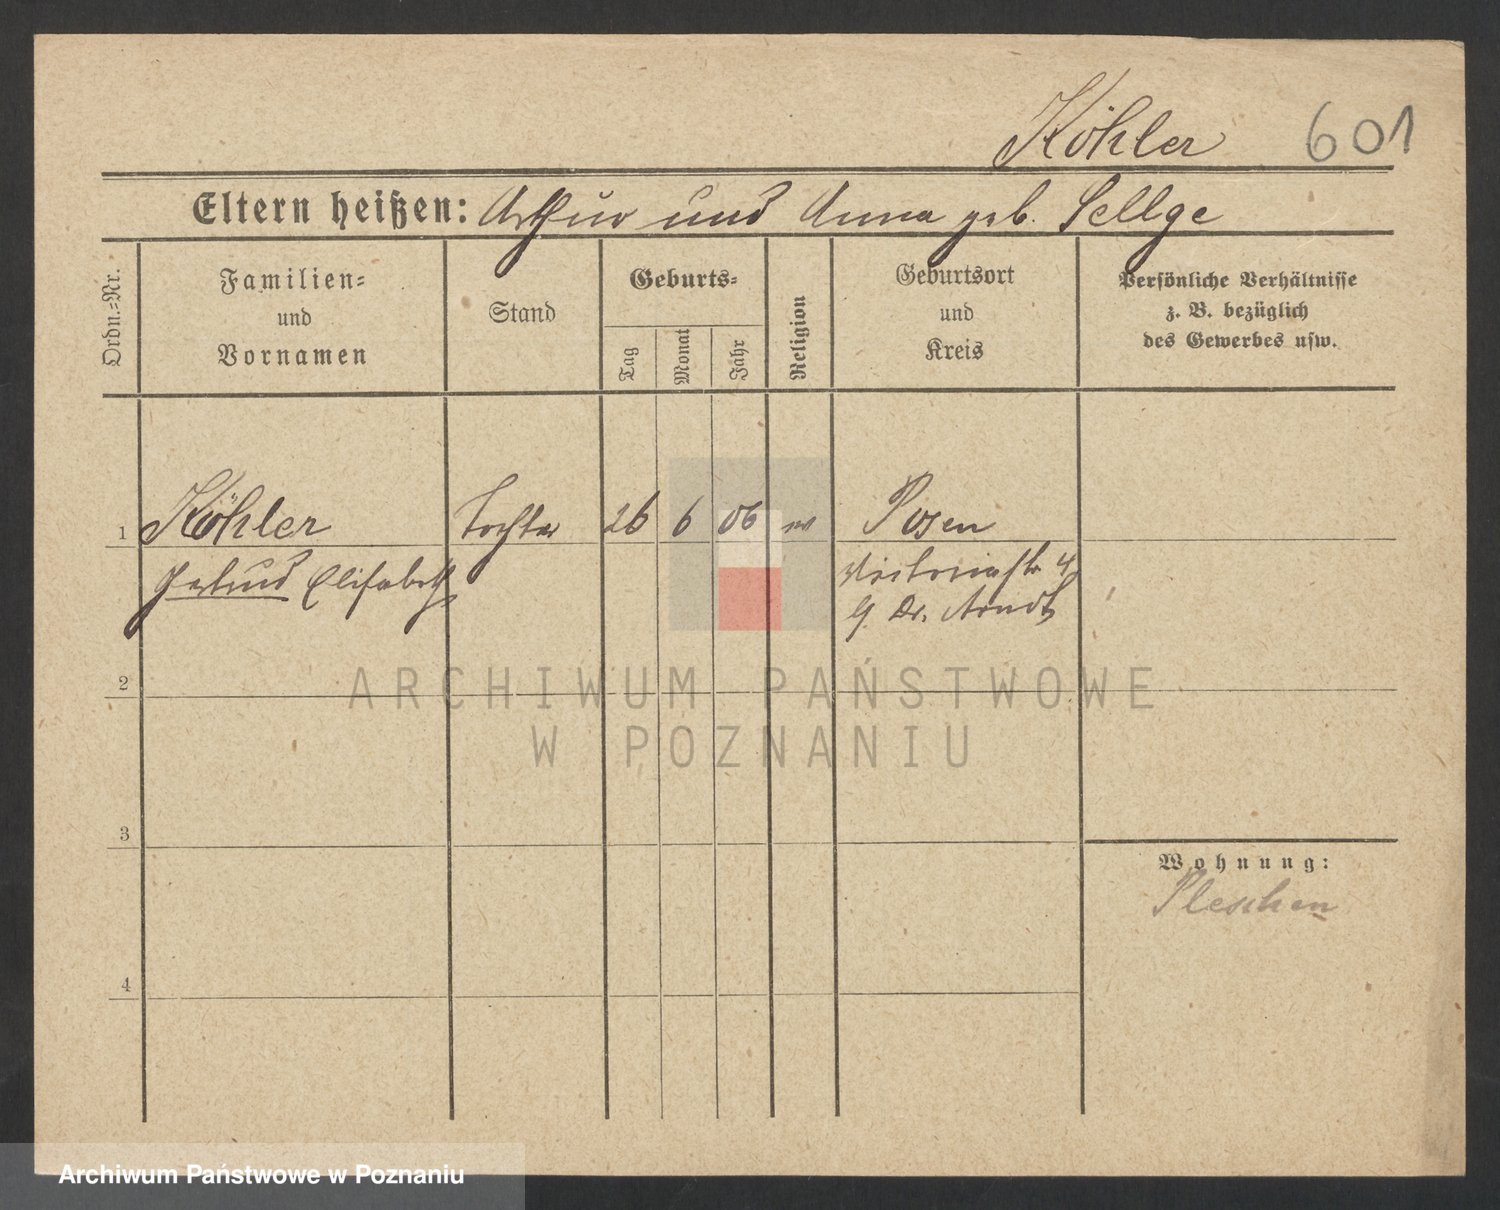 Köhler 601
Eltern heißen: Arthur und Anna geb. Sellge
Ordn.-Nr.
Familien-
und
Vornamen
Stand
Geburts-
Tag
Monat
Jahr
Religion
Geburtsort
und
Kreis
Persönliche Verhältnisse
z. B. bezüglich
des Gewerbes usw.
1 Köhler Tochter 26 6 06 Posen
Gertrud Elisabeth Victoriastr 4
Dr. Arndt
2
3
4
Wohnung:
Pleschen
ARCHIWUM PAŃSTWOWE
W POZNANIU
Archiwum Państwowe w Poznaniu